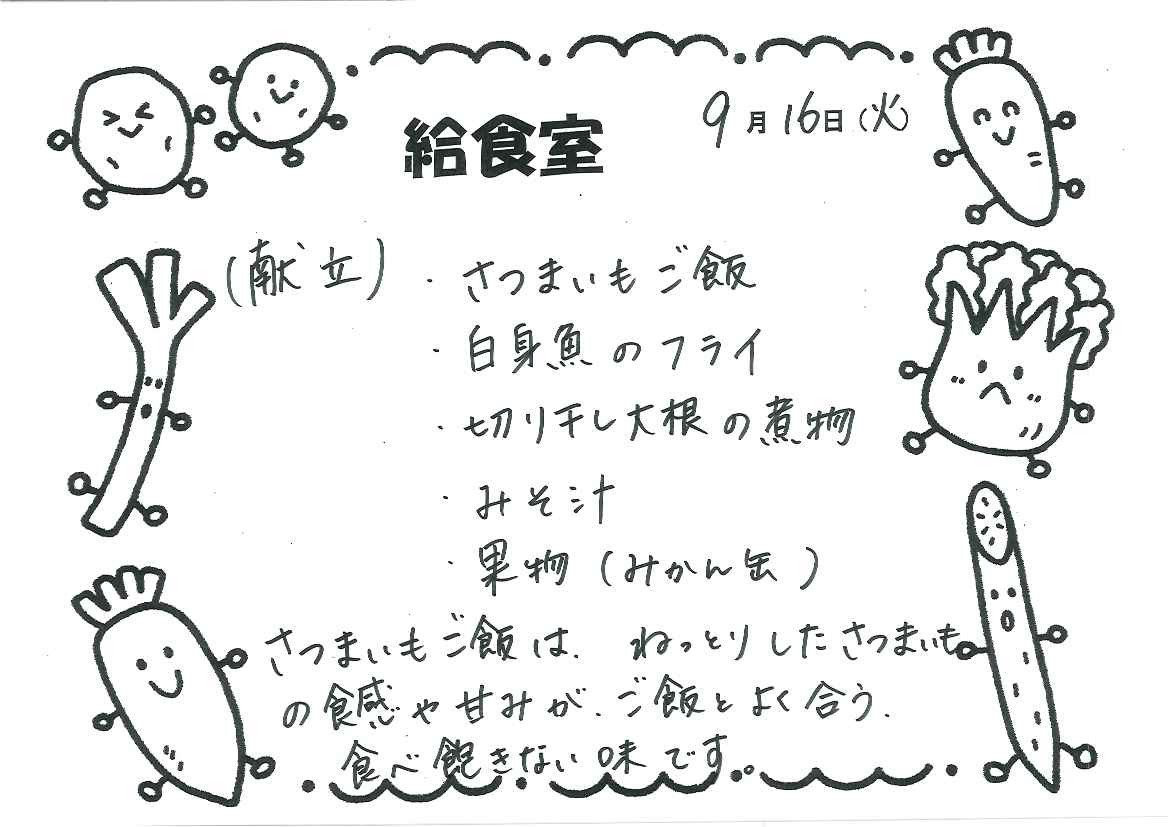 給食室
9月16日(火)
(献立)・さつまいもご飯
・白身魚のフライ
・切り干し大根の煮物
・みそ汁
・果物(みかん缶)
さつまいもご飯は、ねっとりしたさつまいも
の食感や甘みが、ご飯とよく合う、
食べ飽きない味です。